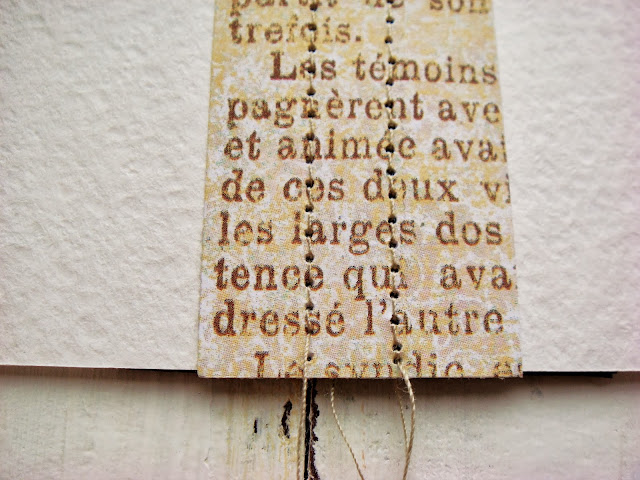 de son
trefois.
Les témoins
pagnèrent ave
et animée avai
de ces deux vi
les larges dos
tence qui ava
dressé l'autre
Le syndic e